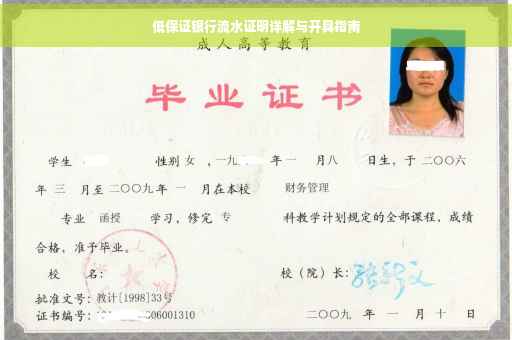 低保证银行流水证明详解与开具指南
成人高等教育
毕业证书
学生 性别 女 ，一九 年 一 月八 日生，于 二〇〇六
年 三 月至 二〇〇九 年 一 月在本校 财务管理
专业 函授 学习，修完 专 科教学计划规定的全部课程，成绩
合格，准予毕业。
校 名： 校（院）长：
批准文号：教计[1998]33号
证书编号： 606001310 二〇〇九 年 一 月 十 日